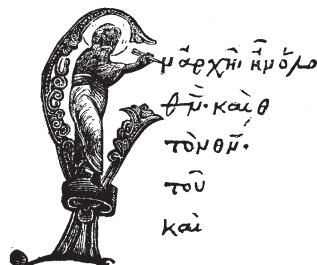 Ἐν ἀρχῆι ἦν ὁ λο
θ̅ν̅· καὶ θ
τὸν θ̅ν̅·
τοῦ
καὶ